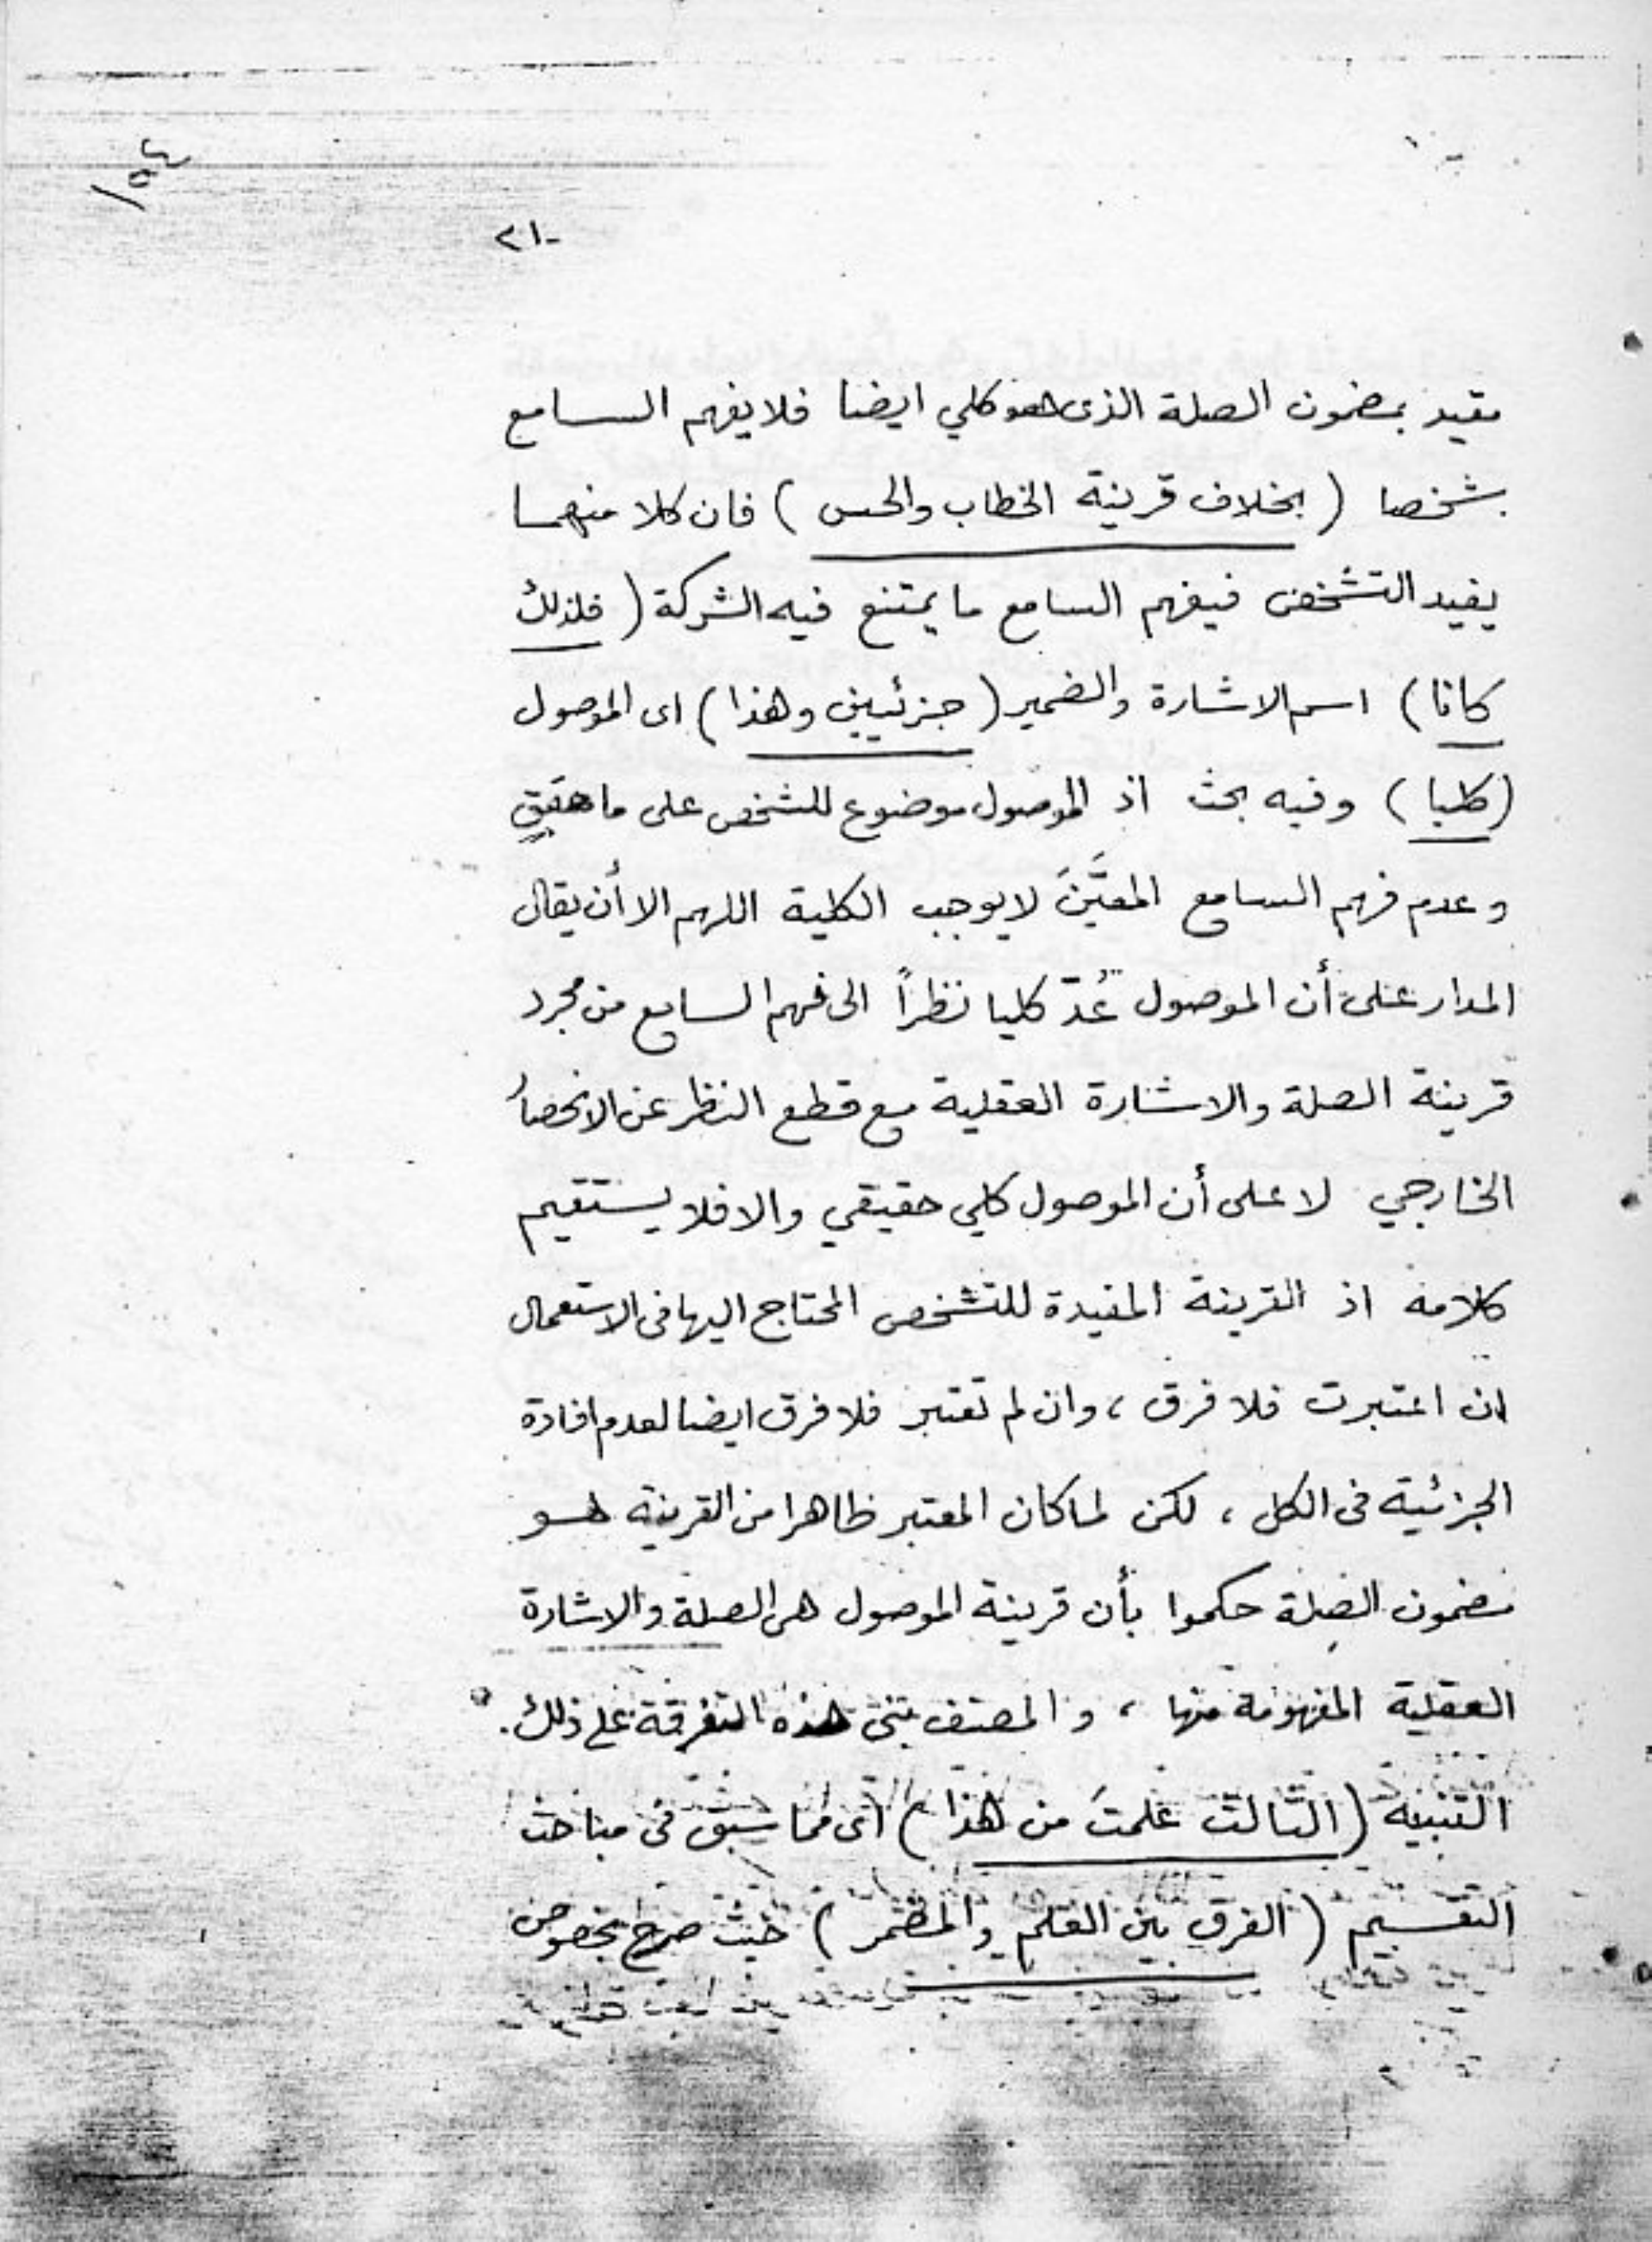 ٢١-
مقيد بمضمون الصلة الذى هو كلي ايضا فلا يفهم السامع
شخصا ( بخلاف قرينة الخطاب والحس ) فان كلا منهما
يفيد التشخص فيفهم السامع ما يمتنع فيه الشركة ( فلذلك
كانا ) اسم الاشارة والضمير ( جزئيين وهذا ) اى الموصول
( كليا ) وفيه بحث اذ الموصول موضوع للشخص على ما حقق
وعدم فهم السامع المعيَّنَ لا يوجب الكلية اللهم الا أن يقال
المدار على أن الموصول عُدّ كليا نظراً الى فهم السامع من مجرد
قرينة الصلة والاشارة العقلية مع قطع النظر عن الانحصار
الخارجي لا على أن الموصول كلي حقيقي والا فلا يستقيم
كلامه اذ القرينة المفيدة للتشخص المحتاج اليها فى الاستعمال
ان اعتبرت فلا فرق ، وان لم تعتبر فلا فرق ايضا لعدم افادة
الجزئية فى الكل ، لكن لما كان المعتبر ظاهرا من القرينة هو
مضمون الصلة حكموا بأن قرينة الموصول هى الصلة والاشارة
العقلية المفهومة منها ، و المصنف بنى هذه التفرقة على ذلك .
التنبيه ( الثالث علمتَ من هذا ) اى مما سبق فى مباحث
التقسيم ( الفرق بين العلم والمضمر ) حيث صرح بخصوص